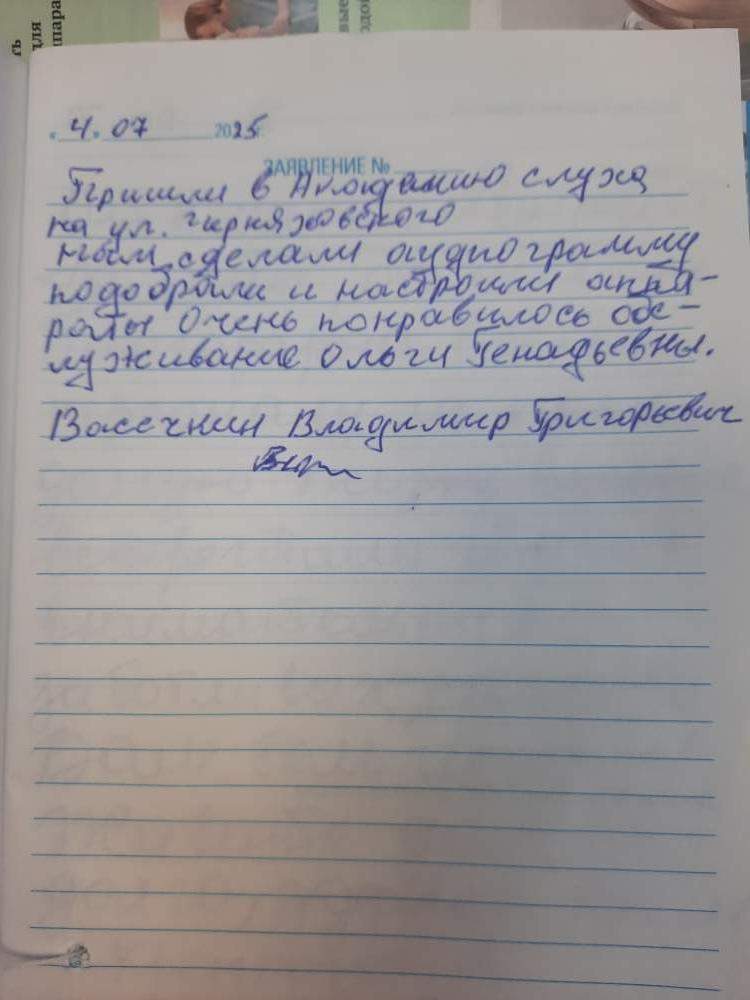 ть
для
ппара
вые
одо
4. 07 2025
ЗАЯВЛЕНИЕ №
Пришли в Академию слуха
на ул. Черняховского
Нам сделали аудиограмму
подобрали и настроили аппа-
раты Очень понравилось обс-
луживание Ольги Генадьевны.
Васечкин Владимир Григорьевич